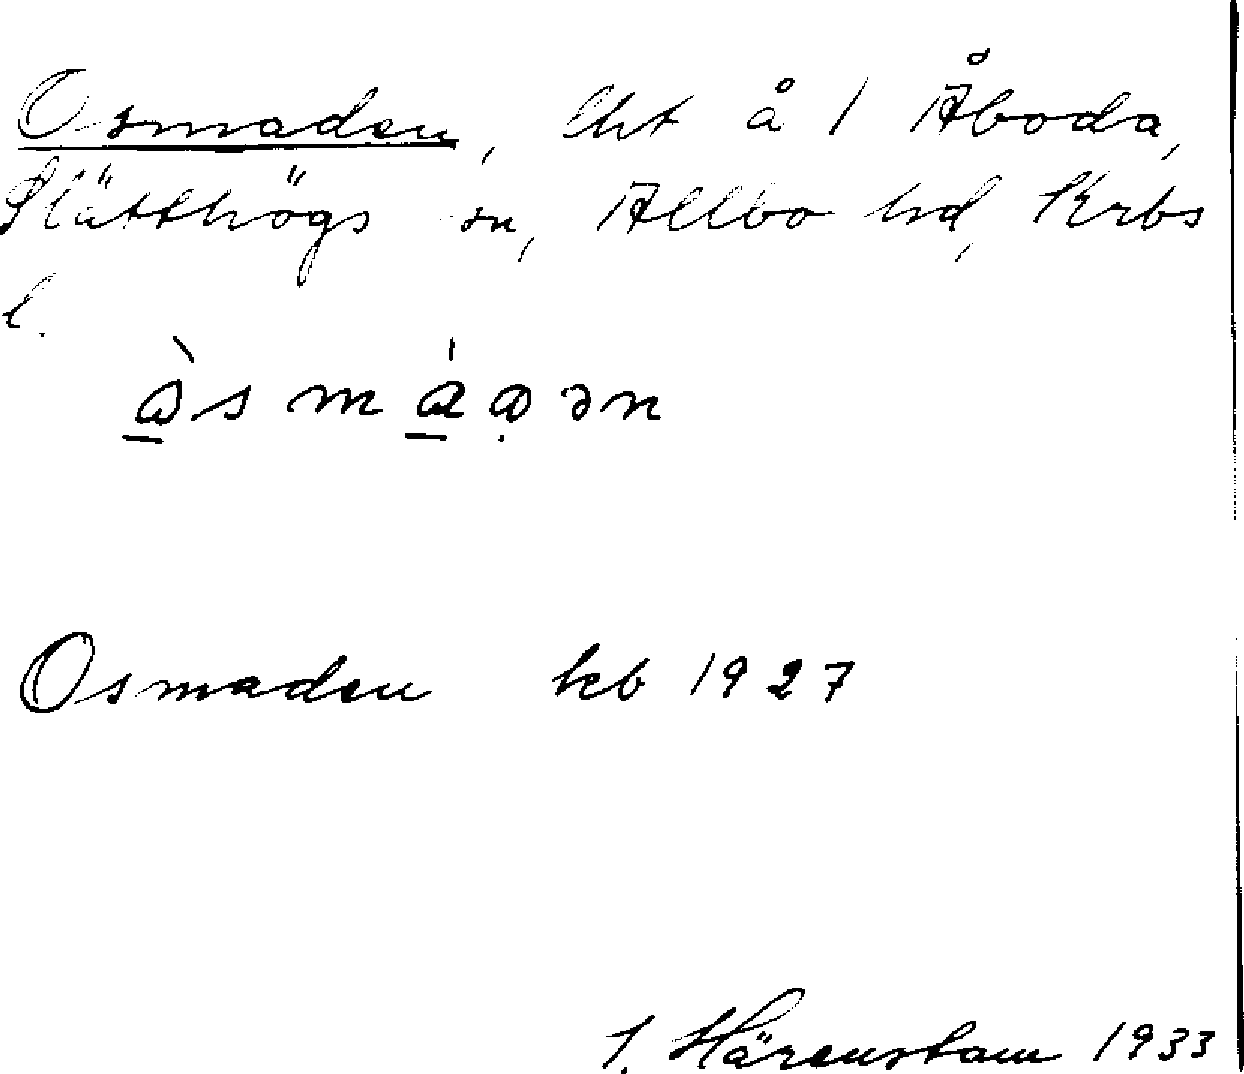 Osmaden, lht å 1 Åboda,
Slätthögs sn, Allbo hd, Krbs
l.
Osmaden kb 1927
J. Härenstam 1933